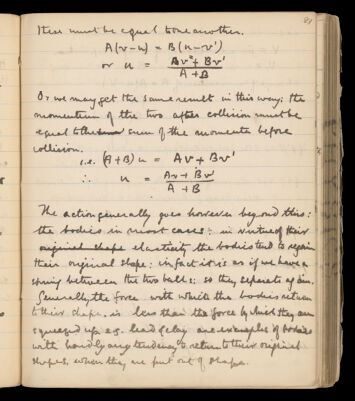 81
These must be equal to one another.
A(v-u) = B(u-v')
or u = Av + Bv'
A+B
Or we may get the same result in this way; the
momentum of the two after collision must be
equal to the sum of the momenta before
collision.
i.e. (A+B)u = Av + Bv'
∴ u = Av + Bv'
A+B
The action generally goes however beyond this:
the bodies in most cases: in virtue of their
original shape elasticity the bodies tend to regain
their original shape: in fact it is as if we have a
spring between the two balls: so they separate again.
Generally the force with which the bodies return
to their shape is less than the force by which they are
squeezed up e.g. lead & clay are examples of bodies
with hardly any tendency to return to their original
shapes, when they are put out of shape.